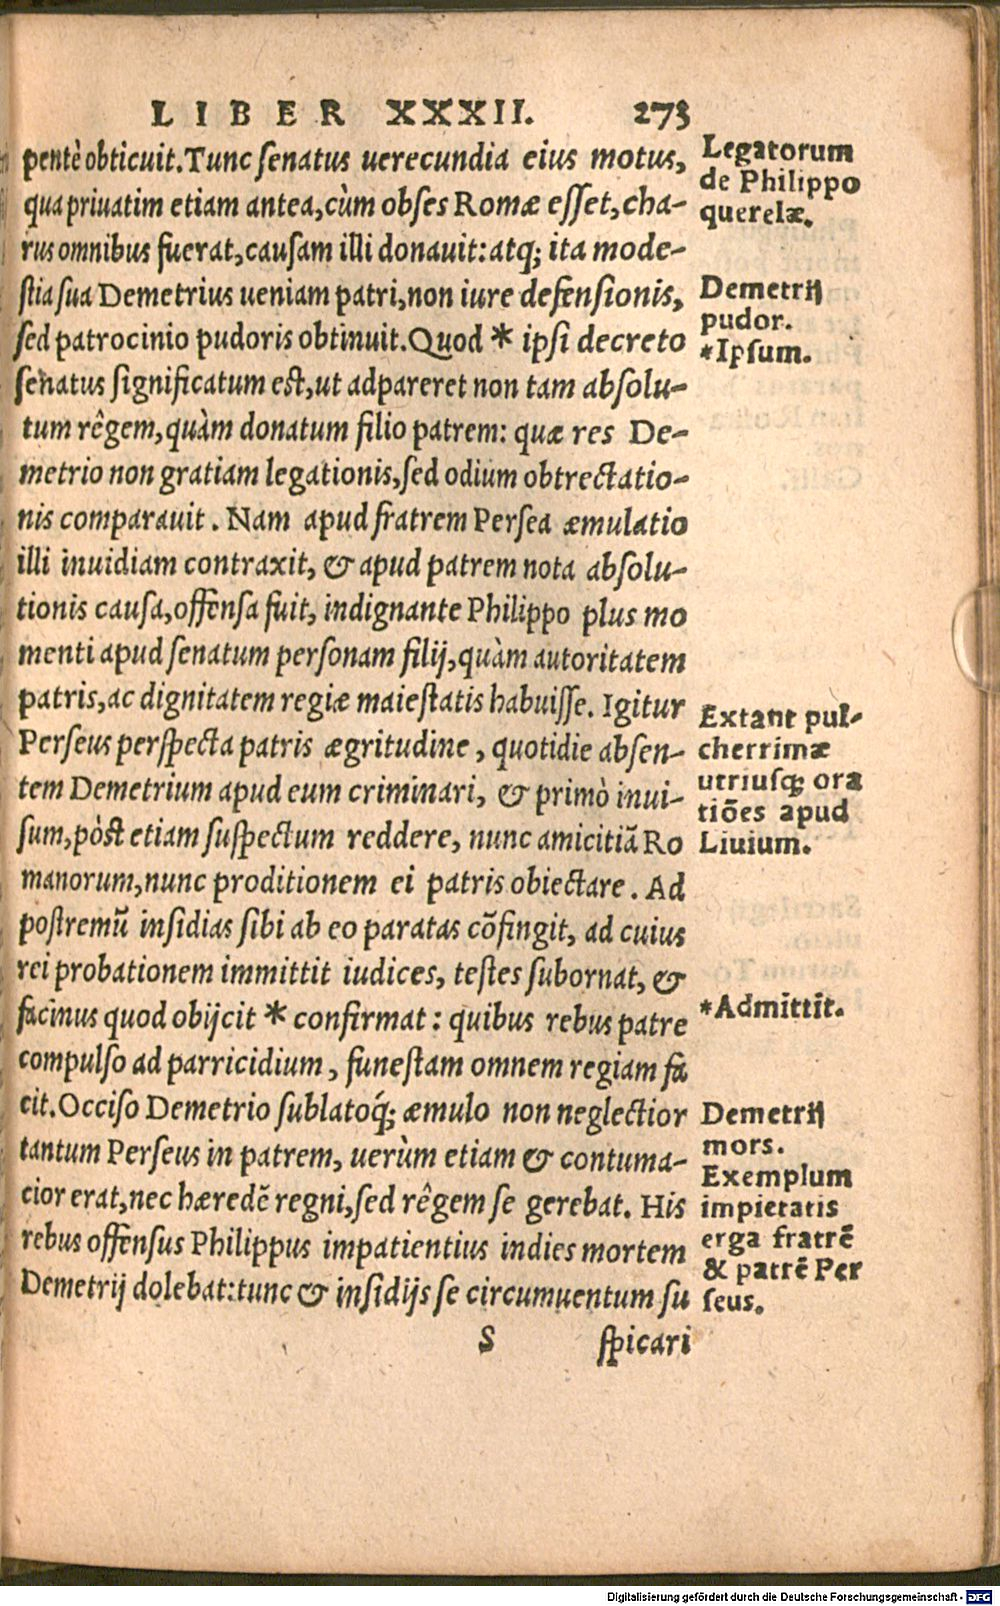 LIBER XXXII. 273
pentè obticuit. Tunc senatus uerecundia eius motus,
qua priuatim etiam antea, cùm obses Romæ esset, cha-
rus omnibus fuerat, causam illi donauit: atq; ita mode-
stia sua Demetrius ueniam patri, non iure defensionis,
sed patrocinio pudoris obtinuit. Quod * ipsi decreto
senatus significatum est, ut adpareret non tam absolu-
tum rêgem, quàm donatum filio patrem: quæ res De-
metrio non gratiam legationis, sed odium obtrectatio-
nis comparauit. Nam apud fratrem Persea æmulatio
illi inuidiam contraxit, & apud patrem nota absolu-
tionis causa, offensa fuit, indignante Philippo plus mo
menti apud senatum personam filij, quàm autoritatem
patris, ac dignitatem regiæ maiestatis habuisse. Igitur
Perseus perspecta patris ægritudine, quotidie absen-
tem Demetrium apud eum criminari, & primò inui-
sum, pòst etiam suspectum reddere, nunc amicitiã Ro
manorum, nunc proditionem ei patris obiectare. Ad
postremũ insidias sibi ab eo paratas cõfingit, ad cuius
rei probationem immittit iudices, testes subornat, &
facinus quod obijcit * confirmat: quibus rebus patre
compulso ad parricidium, funestam omnem regiam fa
cit. Occiso Demetrio sublatoq́; æmulo non neglectior
tantum Perseus in patrem, uerùm etiam & contuma-
cior erat, nec hæredẽ regni, sed rêgem se gerebat. His
rebus offensus Philippus impatientius indies mortem
Demetrij dolebat: tunc & insidijs se circumuentum su
S spicari
Legatorum
de Philippo
querelæ.
Demetrij
pudor.
*Ipsum.
Extant pul-
cherrimæ
utriusq; ora
tiões apud
Liuium.
*Admittit.
Demetrij
mors.
Exemplum
impietatis
erga fratrẽ
& patrẽ Per
seus.
Digitalisierung gefördert durch die Deutsche Forschungsgemeinschaft - DFG